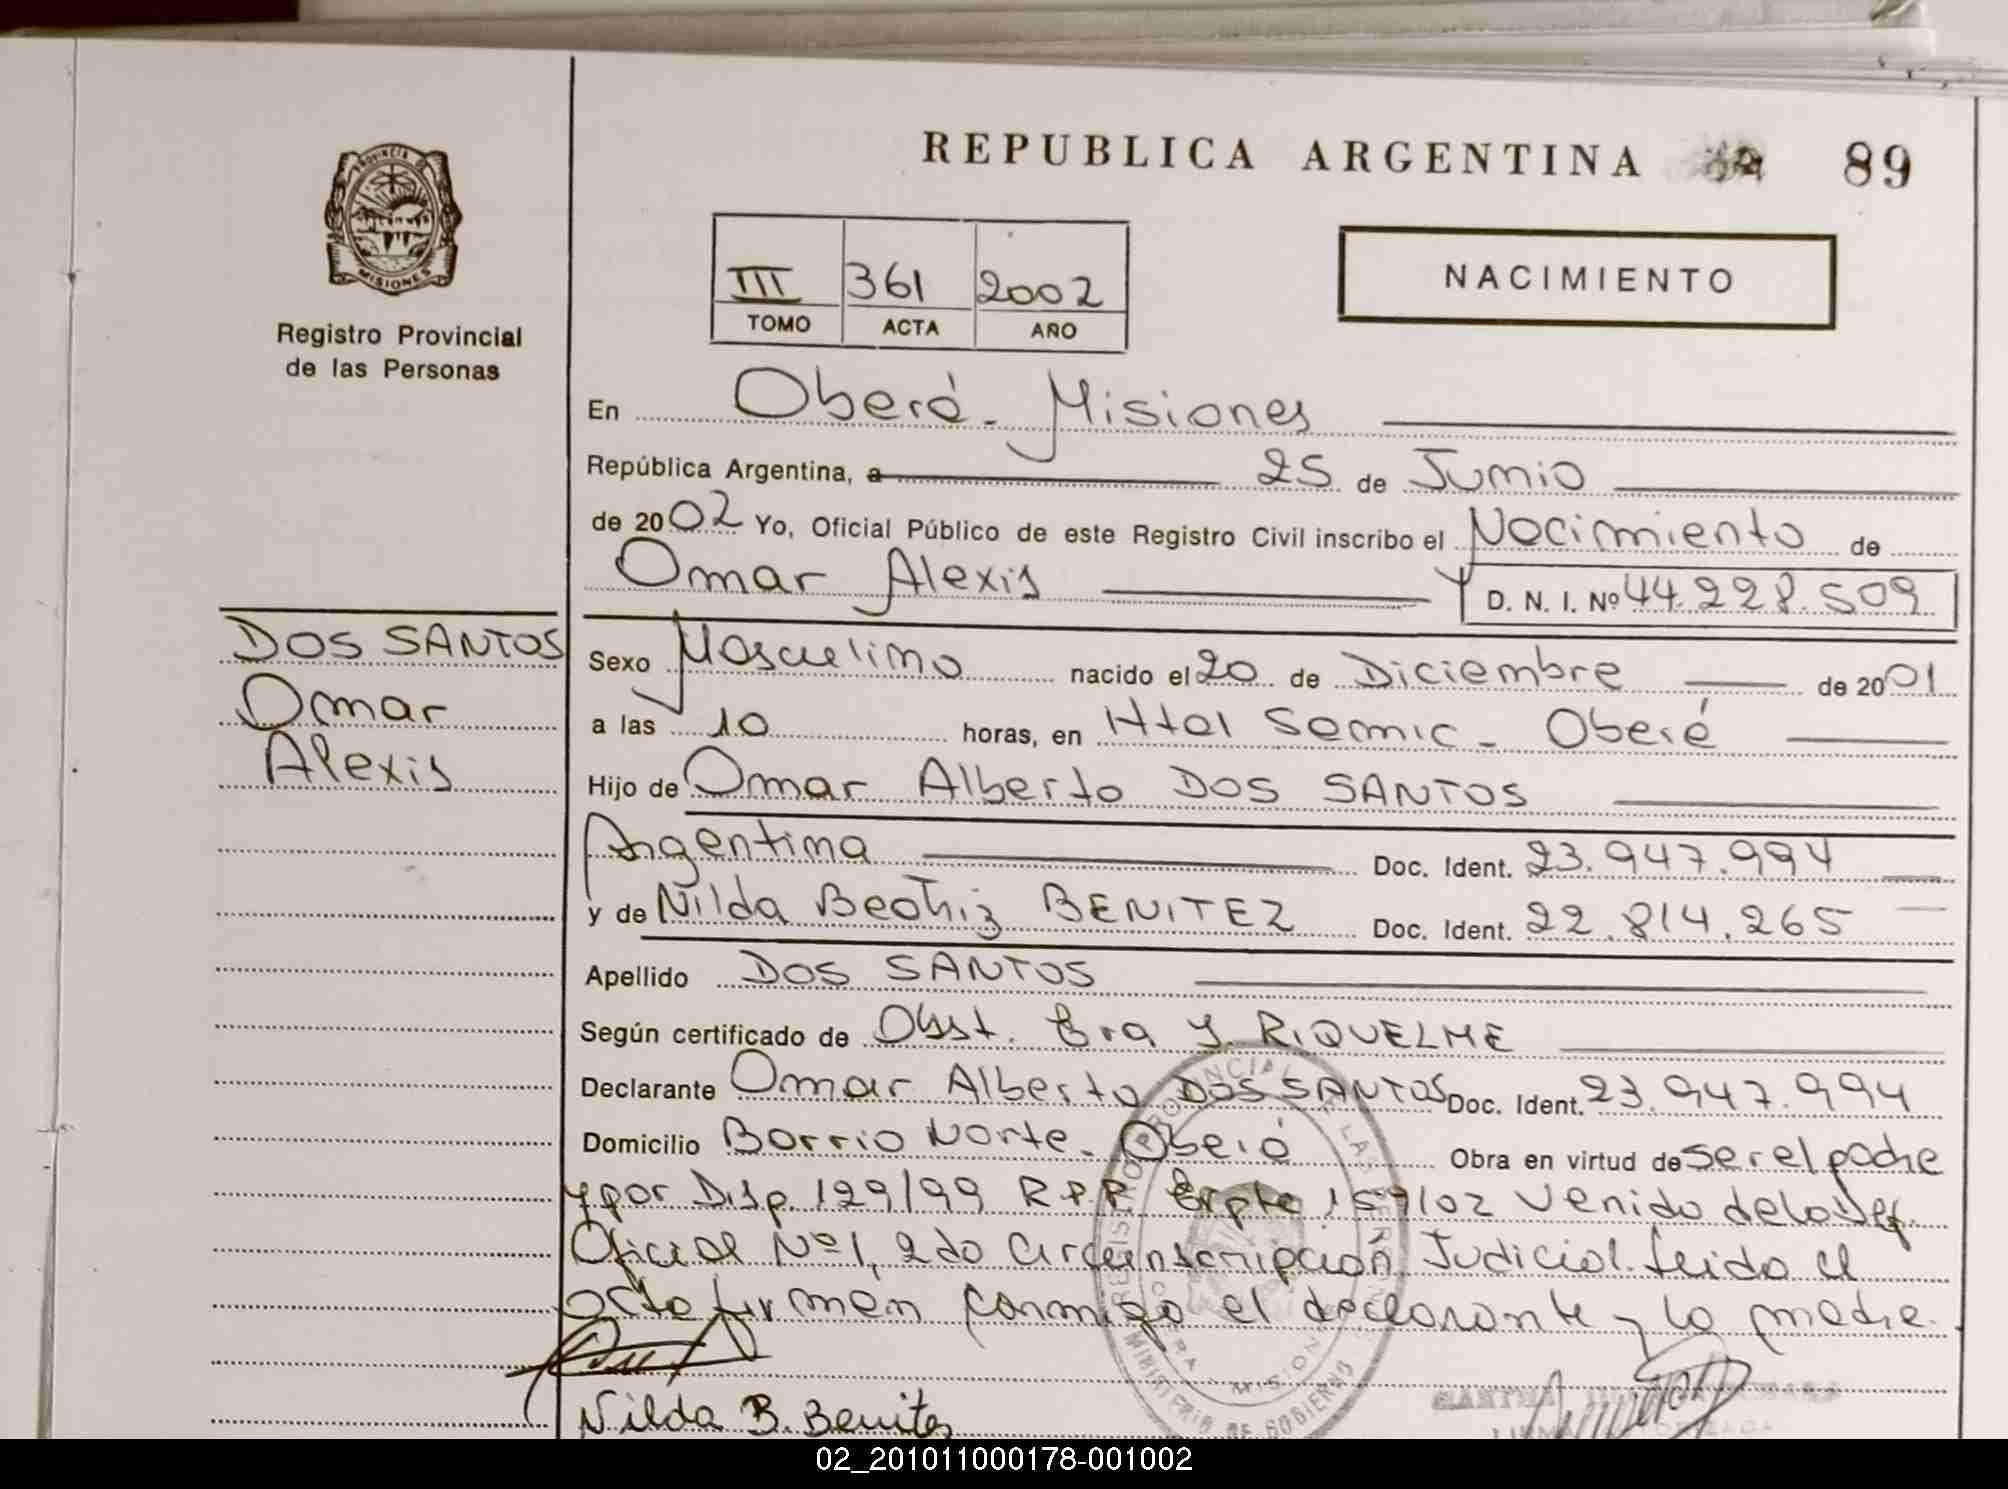 REPUBLICA ARGENTINA 89
PROVINCIA DE
MISIONES
Registro Provincial
de las Personas
III 361 2002
TOMO ACTA AÑO
NACIMIENTO
En Oberá - Misiones
República Argentina, a 25 de Junio
de 2002 Yo, Oficial Público de este Registro Civil inscribo el Nacimiento de
Omar Alexis D. N. I. Nº 44.228.509
DOS SANTOS
Omar
Alexis
Sexo Masculino nacido el 20 de Diciembre de 2001
a las 10 horas, en Htal Samic - Oberá
Hijo de Omar Alberto DOS SANTOS
Argentina Doc. Ident. 23.947.994
y de Nilda Beatriz BENITEZ Doc. Ident. 22.814.265
Apellido DOS SANTOS
Según certificado de Obst. Y. RIQUELME
Declarante Omar Alberto DOS SANTOS Doc. Ident. 23.947.994
Domicilio Barrio Norte - Oberá Obra en virtud de ser el padre
y por Disp. 129/99 R.P.P. Expte 159/02 venido de la Def.
Oficial Nº 1, 2da Circunscripción Judicial. Leída el
acta firman conmigo el declarante y la madre.
Nilda B. Benitez
REGISTRO PROVINCIAL DE LAS PERSONAS
MINISTERIO DE GOBIERNO
OBERA MISIONES
02_201011000178-001002